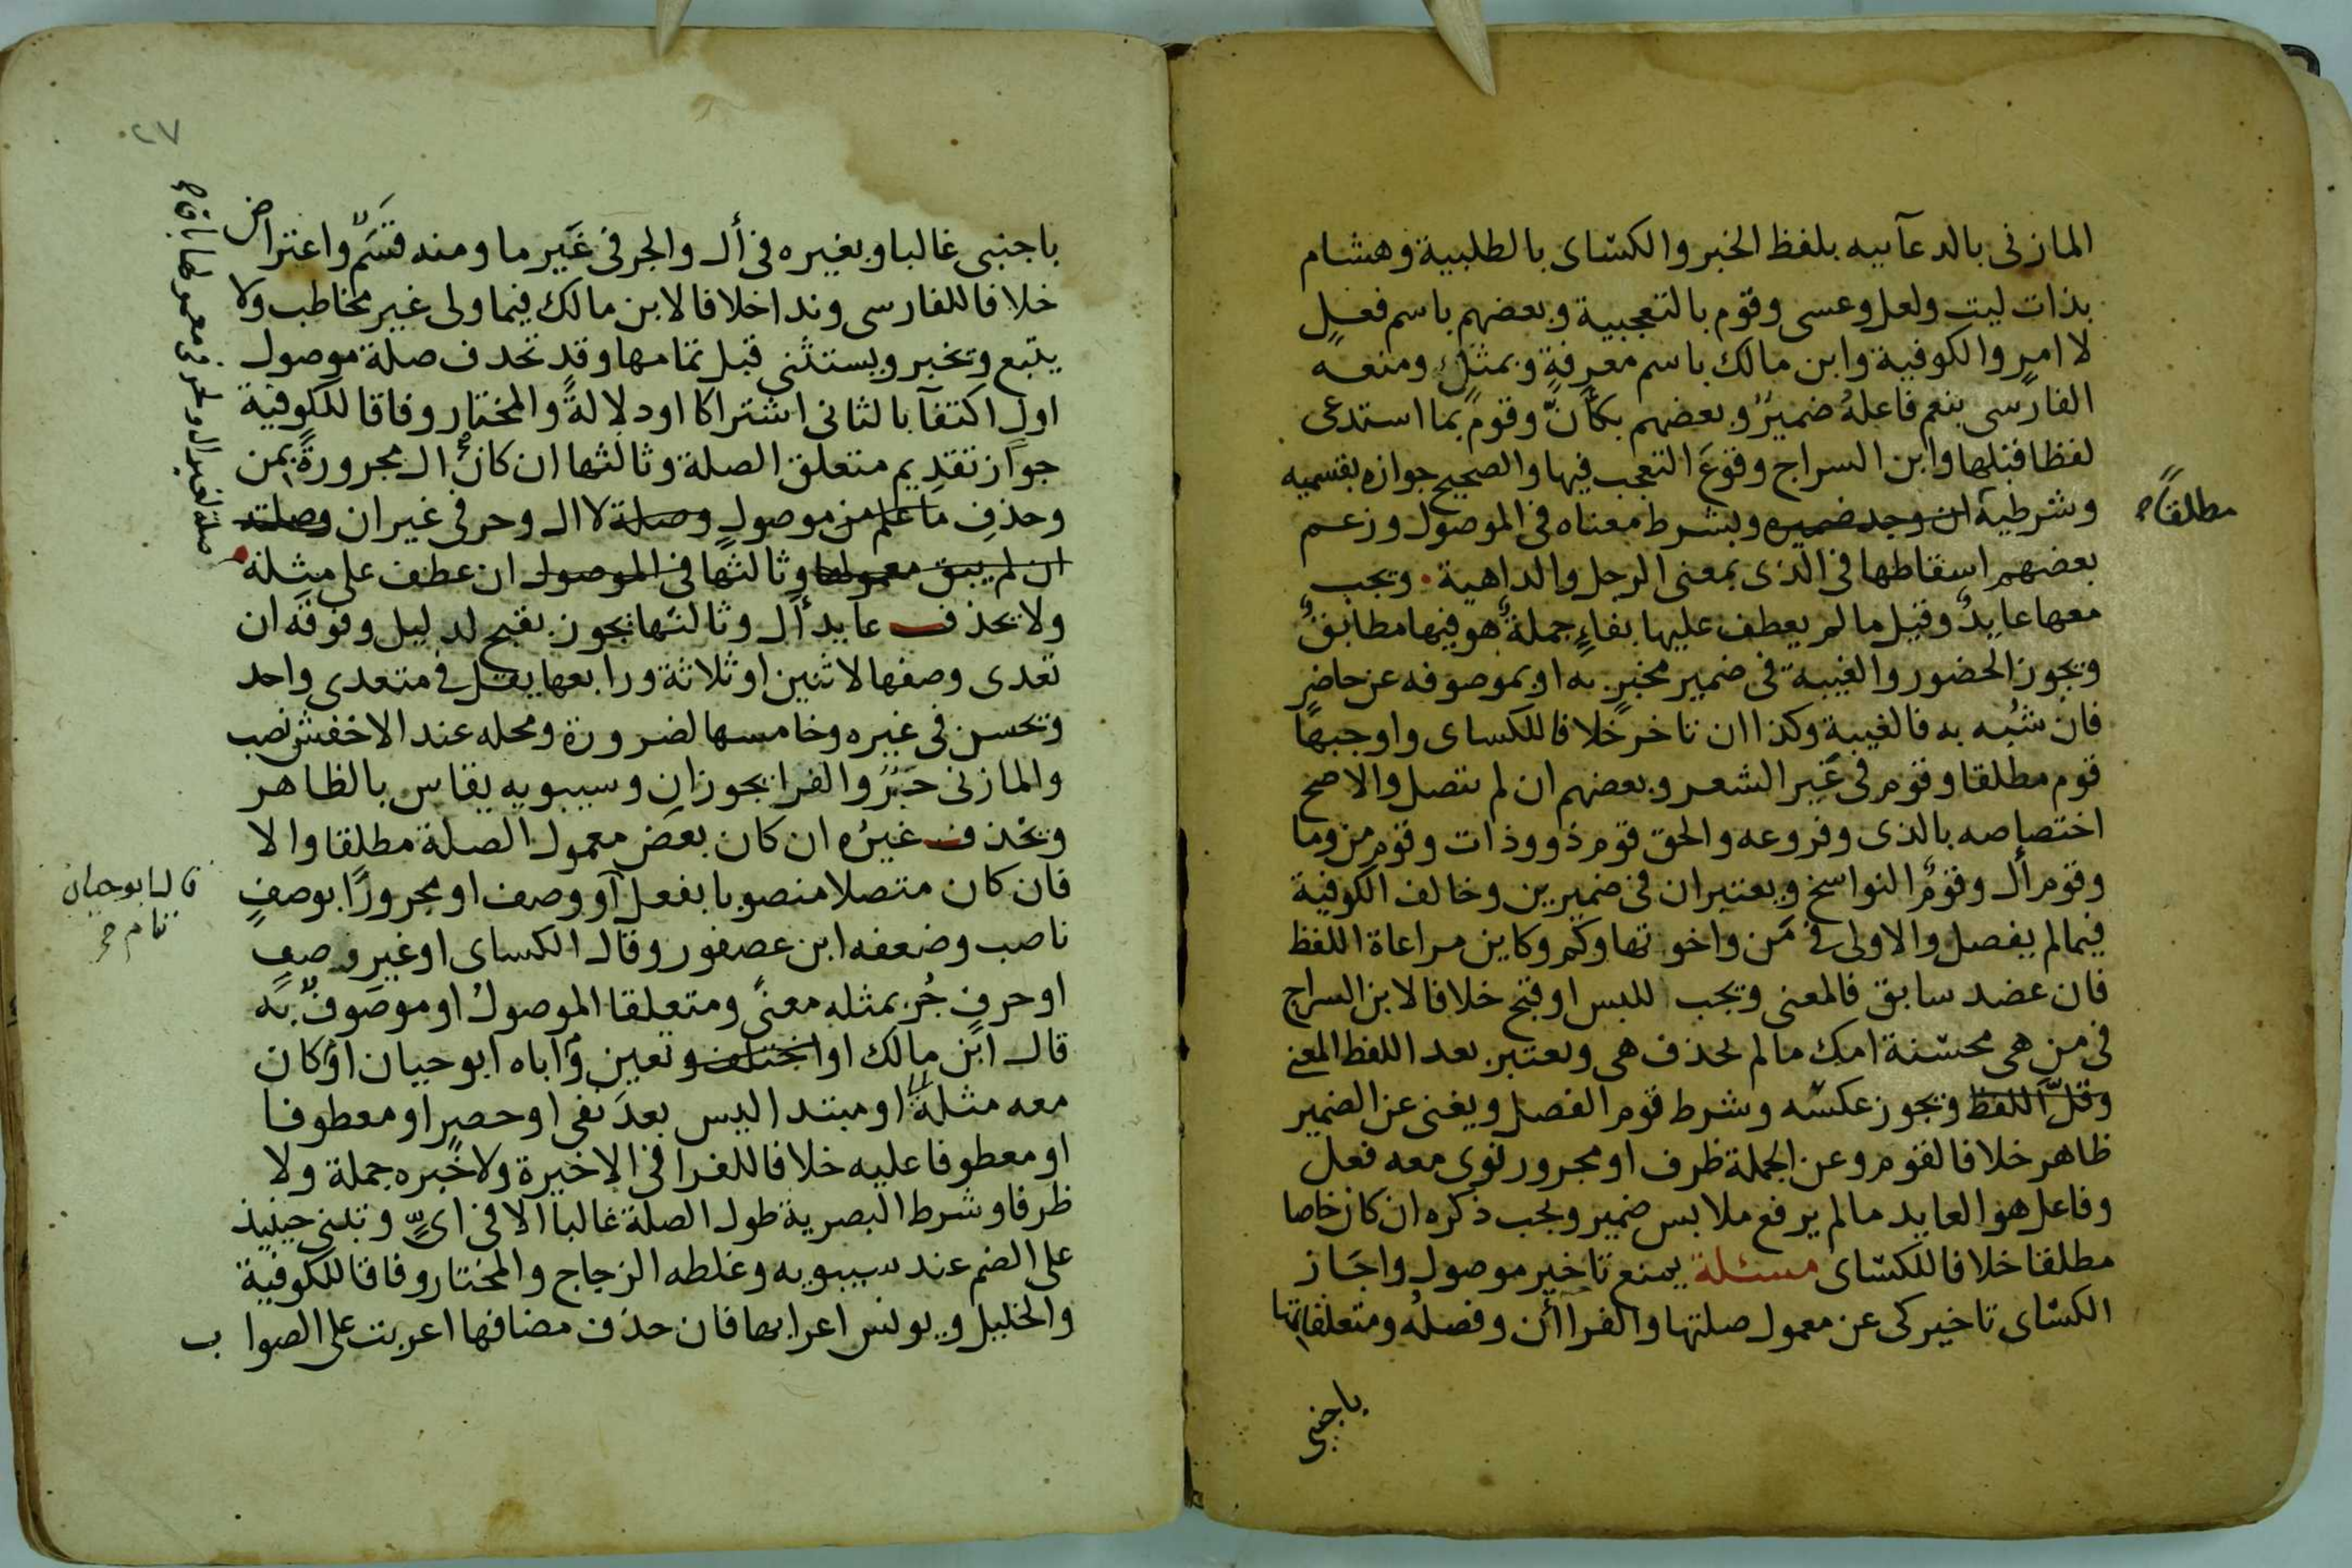 المازنى بالدعآييه بلفظ الخبر والكسّاى بالطلبية وهشام
بذات ليت ولعل وعسى وقوم بالتعجبية وبعضهم باسم فعلٍ
لا امر والكوفية وابن مالك باسم معرفةٍ وبمثلٍ ومنعه
الفارسى بنعم فاعلهُ ضميرٌ وبعضهم بكأنّ وقوم بما استدعى
لفظا قبلها وابن السراج وقوعَ التعجب فيها والصحيح جوازه بقسميه
وشرطية ان وجد ضميره وبشرط معناه فى الموصول وزعم
مطلقاً
بعضهم اسقاطها فى الذى بمعنى الرجل والداهية . ويجب
معها عايدٌ وقيل مالم يعطف عليها بفاءٍ جملةٌ هو فيها مطابقٌ
ويجوز الحضور والغيبة فى ضمير مخبرٍ به او بموصوفه عن حاضر
فان شُبه به فالغيبة وكذا ان تاخر خلافا للكساى واوجبها
قوم مطلقا وقوم فى غير الشعر وبعضهم ان لم يتصل والاصح
اختصاصه بالذى وفروعه والحق قوم ذو وذات وقوم من وما
وقوم أل وقومٌ النواسخ ويعتبران فى ضميرين وخالف الكوفية
فيما لم يفصل والاولى فى مَن واخوتها وكم وكاين مراعاة اللفظ
فان عضد سابق فالمعنى ويجب للبس او قبح خلافا لابن السراج
فى من هى محسنة امك مالم يحذف هى ويعتبر بعد اللفظ المعنى
وقلّ اللفظ ويجوز عكسُه وشرط قوم الفصل ويغنى عن الضمير
ظاهر خلافا لقوم وعن الجملة ظرف او مجرور نوى معه فعل
وفاعل هو العايد مالم يرفع ملابس ضمير ويجب ذكره ان كان خاصا
مطلقا خلافا للكسّاى مسئلة يمنع تاخير موصول واجَاز
الكسّاى تاخير كى عن معمول صلتها والفرا أن وفصلُه ومتعلقاتها
باجنبى
باجنبى غالبا وبغيره فى أل والجر فى غير ما ومنه قسَمٌ واعتراض
خلافا للفارسى وندا خلافا لابن مالك فيما ولى غير مخاطب ولا
يتبع وتخبر ويستثنى قبل تمامها وقد تحذف صلة موصول
اول اكتفآ بالثانى اشتراكا او دلالةً والمختار وفاقا للكوفية
جوازتقديم متعلق الصلة وثالثها ان كان ال مجرورةً بمن
وحذفِ ما علم من موصولٍ وصلة لا ال وحرفى غير ان وصلته
ان لم يبق معمولها وثالثها فى الموصول ان عطف على مثله
ولا يحذف عايد أل وثالثها يجوز بقبح لدليل وفوقه ان
تعدى وصفها لاثنين او ثلاثة ورابعها يقل فى متعدى واحد
وتحسن فى غيره وخامسها لضرورة ومحله عند الاخفش نصب
والمازنى جرٌ والفرا يجوزان وسيبويه يقاس بالظاهر
ويحذف غيرُه ان كان بعض معمول الصلة مطلقا والا
فان كان متصلا منصوبا بفعل او وصف او مجرورًا بوصفٍ
قال ابو حيان تام
ناصب وضعفه ابن عصفور وقال الكساى او غير وصفٍ
او حرفٍ جُر بمثله معنىً ومتعلقا الموصولُ او موصوفٌ به
قال ابن مالك او اختلف وتعين وأباه ابو حيان او كان
معه مثلهٌ او مبتدا ليس بعد نفى او حصرٍ او معطوفا
او معطوفا عليه خلافا للفرا فى الاخيرة ولا خبره جملة ولا
ظرفا وشرط البصرية طول الصلة غالبا الا فى اىٍّ وتبنى حينيذ
على الضم عند سيبويه وغلطه الزجاج والمختار وفاقا للكوفية
والخليل ويونس اعرابها فان حذف مضافها اعربت على الصواب